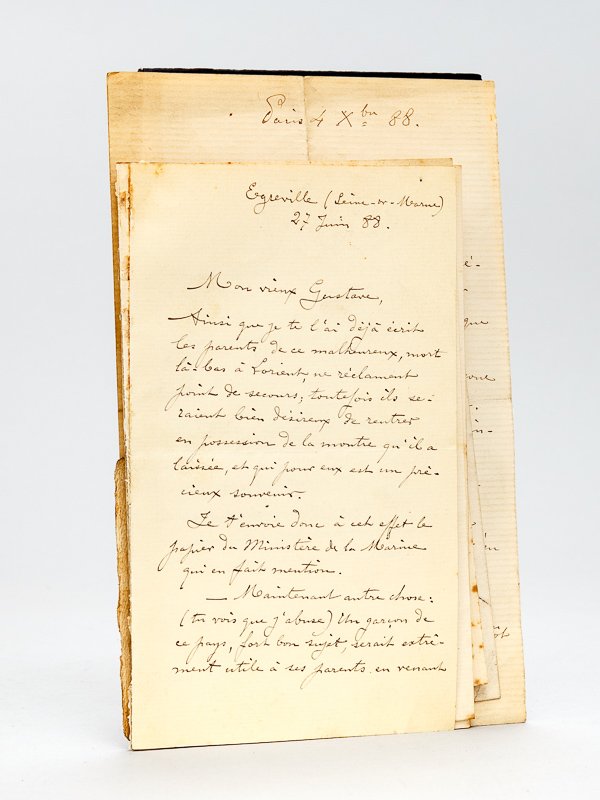 Paris 4 Xbre 88.
Egreville (Seine-et-Marne)
27 Juin 88.
Mon vieux Gustave,
Ainsi que je te l'ai déjà écrit
les parents de ce malheureux, mort
là-bas à Lorient, ne réclament
point de secours; toutefois ils se-
raient bien désireux de rentrer
en possession de la montre qu'il a
laissée, et qui pour eux est un pré-
cieux souvenir.
Je t'envoie donc à cet effet le
papier du Ministère de la Marine
qui en fait mention.
— Maintenant autre chose:
(tu vois que j'abuse) Un garçon de
ce pays, fort bon sujet, serait extrê-
ment utile à ses parents en venant